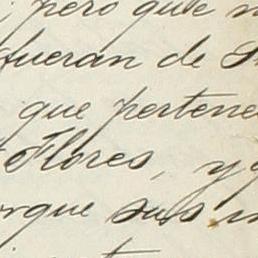 pero que
fueran de
que pertene
Flores, y
rque sus